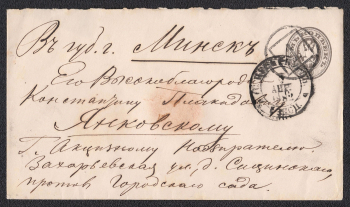 Въ губ. г. Минскъ
Его Высокоблагород
Константину
Янковскому
Г. Акцизному Надзирателю.
Захарьевская ул. д. Сущинскаго,
противъ Городскаго сада.